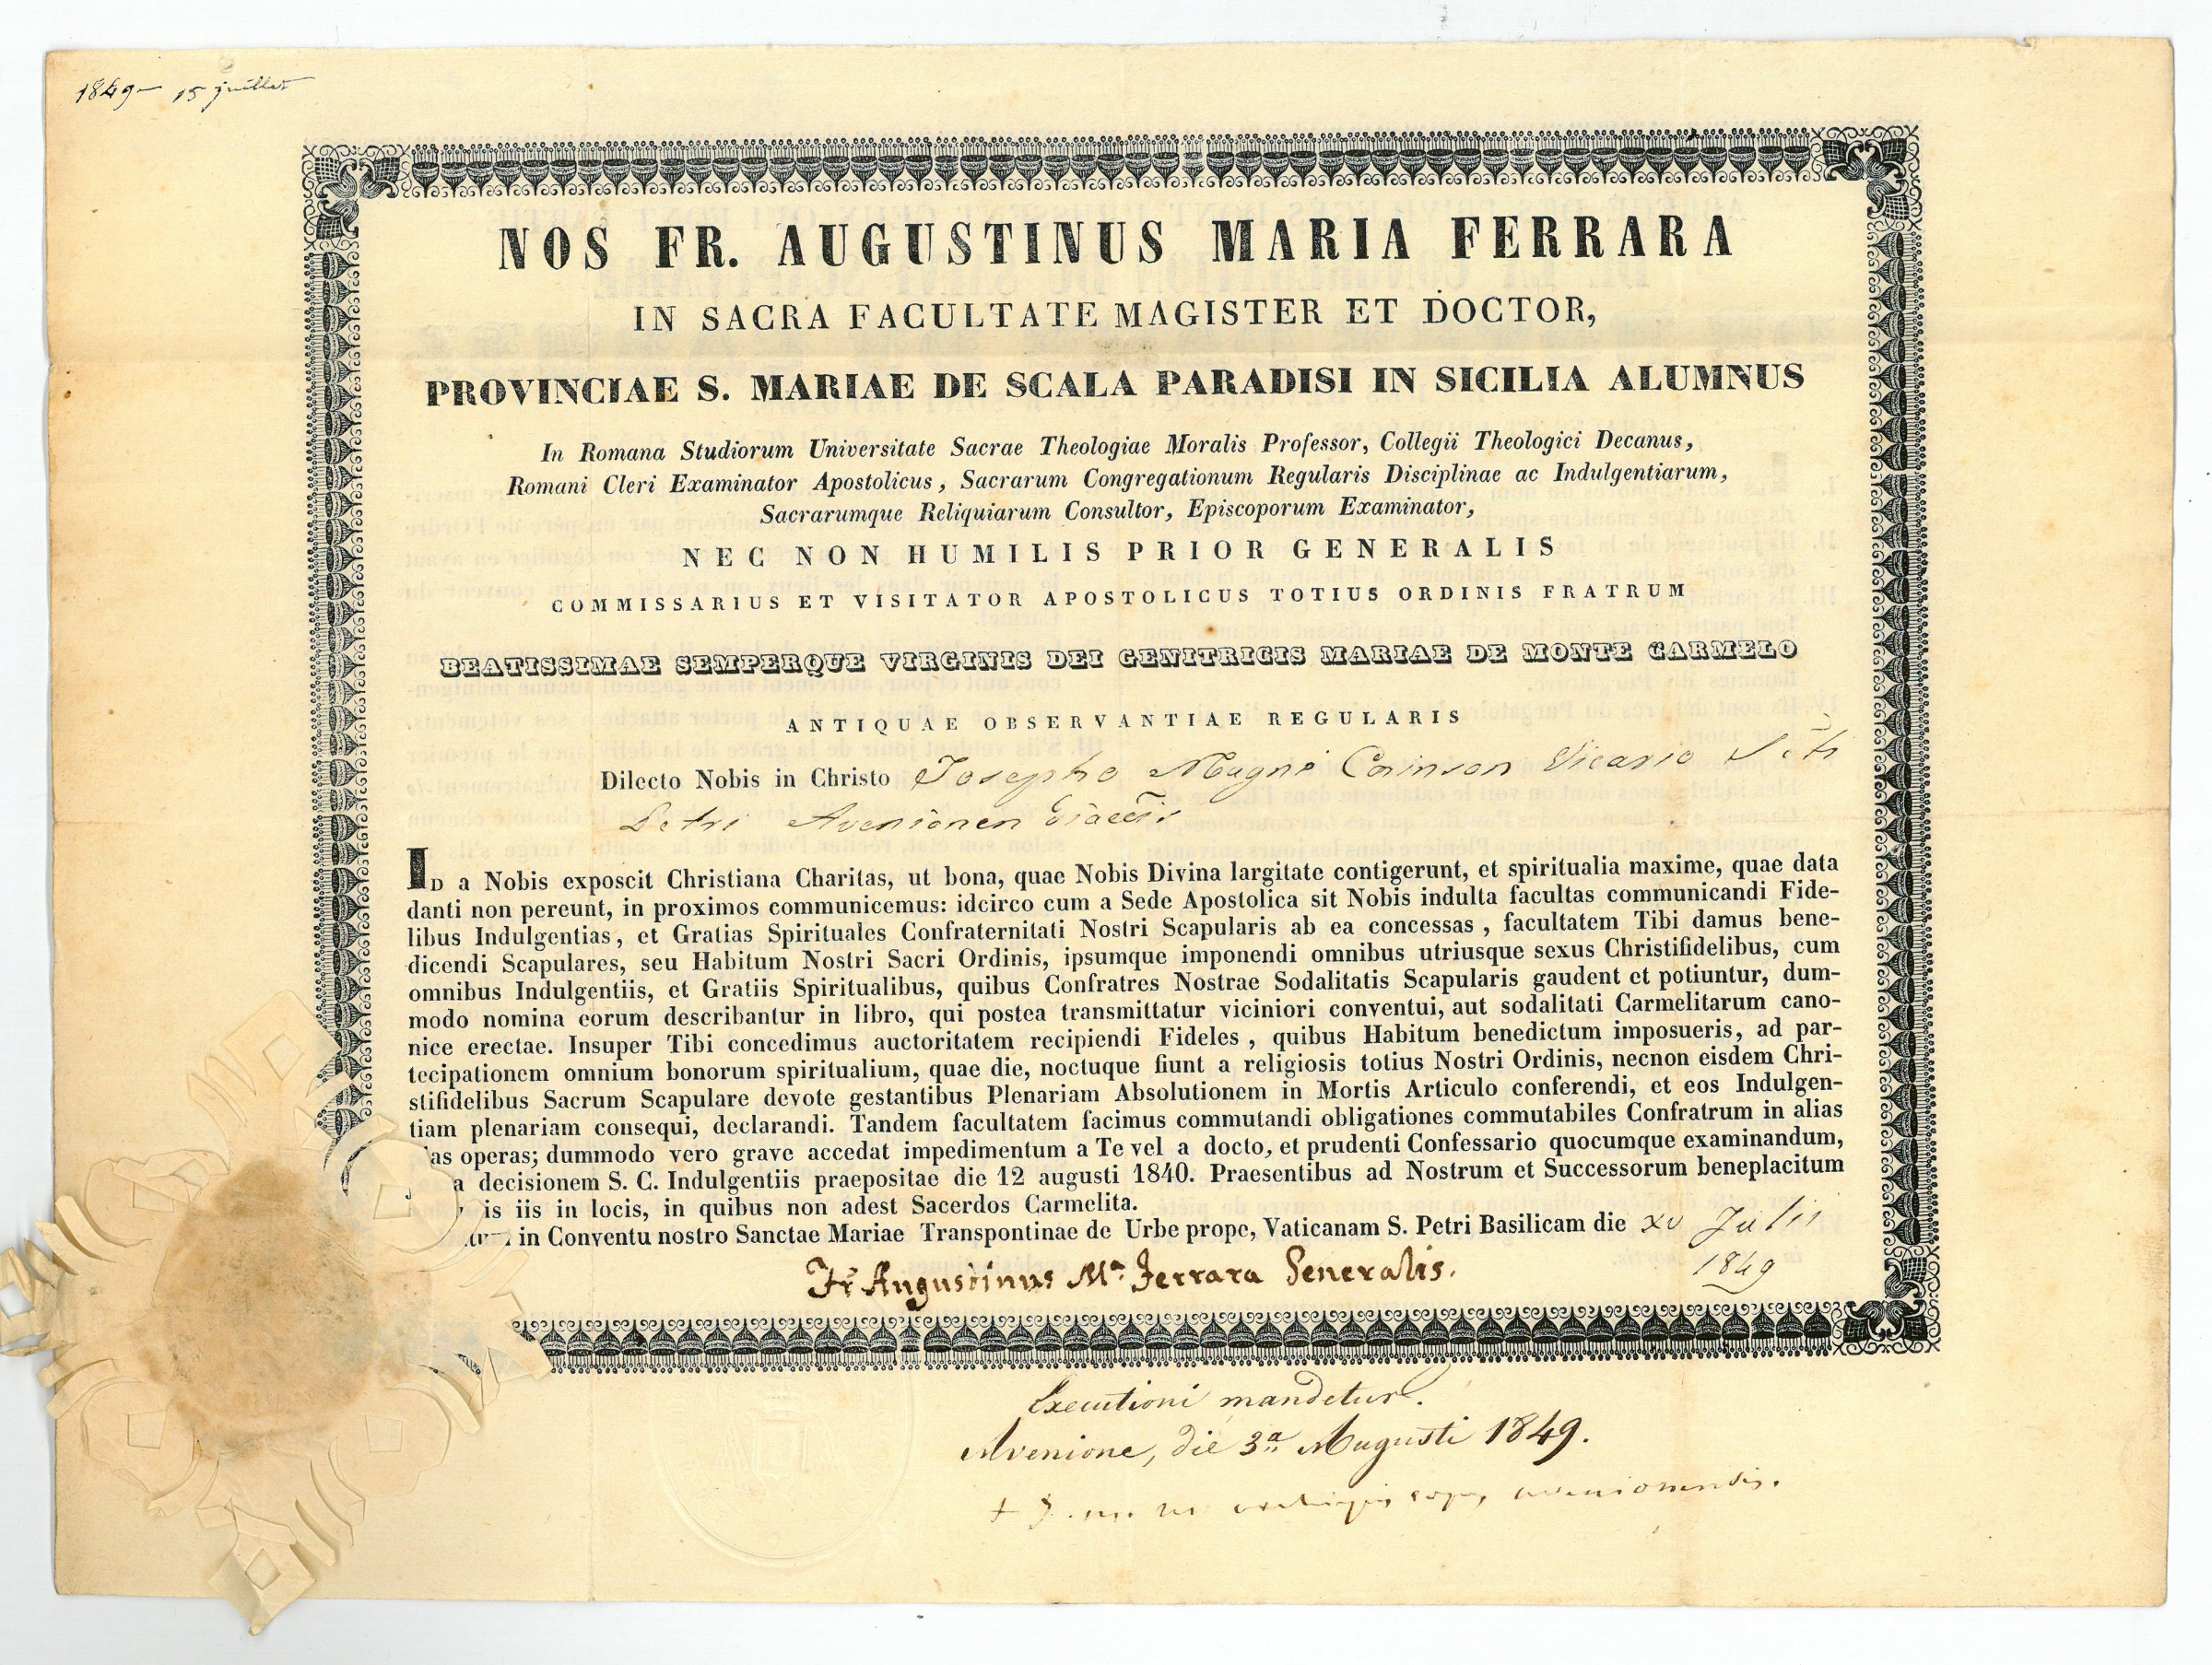 1849 — 15 juillet
NOS FR. AUGUSTINUS MARIA FERRARA
IN SACRA FACULTATE MAGISTER ET DOCTOR,
PROVINCIAE S. MARIAE DE SCALA PARADISI IN SICILIA ALUMNUS
In Romana Studiorum Universitate Sacrae Theologiae Moralis Professor, Collegii Theologici Decanus,
Romani Cleri Examinator Apostolicus, Sacrarum Congregationum Regularis Disciplinae ac Indulgentiarum,
Sacrarumque Reliquiarum Consultor, Episcoporum Examinator,
NEC NON HUMILIS PRIOR GENERALIS
COMMISSARIUS ET VISITATOR APOSTOLICUS TOTIUS ORDINIS FRATRUM
BEATISSIMAE SEMPERQUE VIRGINIS DEI GENITRICIS MARIAE DE MONTE CARMELO
ANTIQUAE OBSERVANTIAE REGULARIS
Dilecto Nobis in Christo Josepho Vicario
Petri Avenionen
ID a Nobis exposcit Christiana Charitas, ut bona, quae Nobis Divina largitate contigerunt, et spiritualia maxime, quae data
danti non pereunt, in proximos communicemus: idcirco cum a Sede Apostolica sit Nobis indulta facultas communicandi Fide-
libus Indulgentias, et Gratias Spirituales Confraternitati Nostri Scapularis ab ea concessas, facultatem Tibi damus bene-
dicendi Scapulares, seu Habitum Nostri Sacri Ordinis, ipsumque imponendi omnibus utriusque sexus Christifidelibus, cum
omnibus Indulgentiis, et Gratiis Spiritualibus, quibus Confratres Nostrae Sodalitatis Scapularis gaudent et potiuntur, dum-
modo nomina eorum describantur in libro, qui postea transmittatur viciniori conventui, aut sodalitati Carmelitarum cano-
nice erectae. Insuper Tibi concedimus auctoritatem recipiendi Fideles, quibus Habitum benedictum imposueris, ad par-
tecipationem omnium bonorum spiritualium, quae die, noctuque fiunt a religiosis totius Nostri Ordinis, necnon eisdem Chri-
stifidelibus Sacrum Scapulare devote gestantibus Plenariam Absolutionem in Mortis Articulo conferendi, et eos Indulgen-
tiam plenariam consequi, declarandi. Tandem facultatem facimus commutandi obligationes commutabiles Confratrum in alias
as operas; dummodo vero grave accedat impedimentum a Te vel a docto, et prudenti Confessario quocumque examinandum,
a decisionem S. C. Indulgentiis praepositae die 12 augusti 1840. Praesentibus ad Nostrum et Successorum beneplacitum
is iis in locis, in quibus non adest Sacerdos Carmelita.
in Conventu nostro Sanctae Mariae Transpontinae de Urbe prope, Vaticanam S. Petri Basilicam die xv Julii
1849
Fr Augustinus Mª Ferrara Generalis.
Executioni mandetur.
Avenione, die 3ª Augusti 1849.
avenionensis.